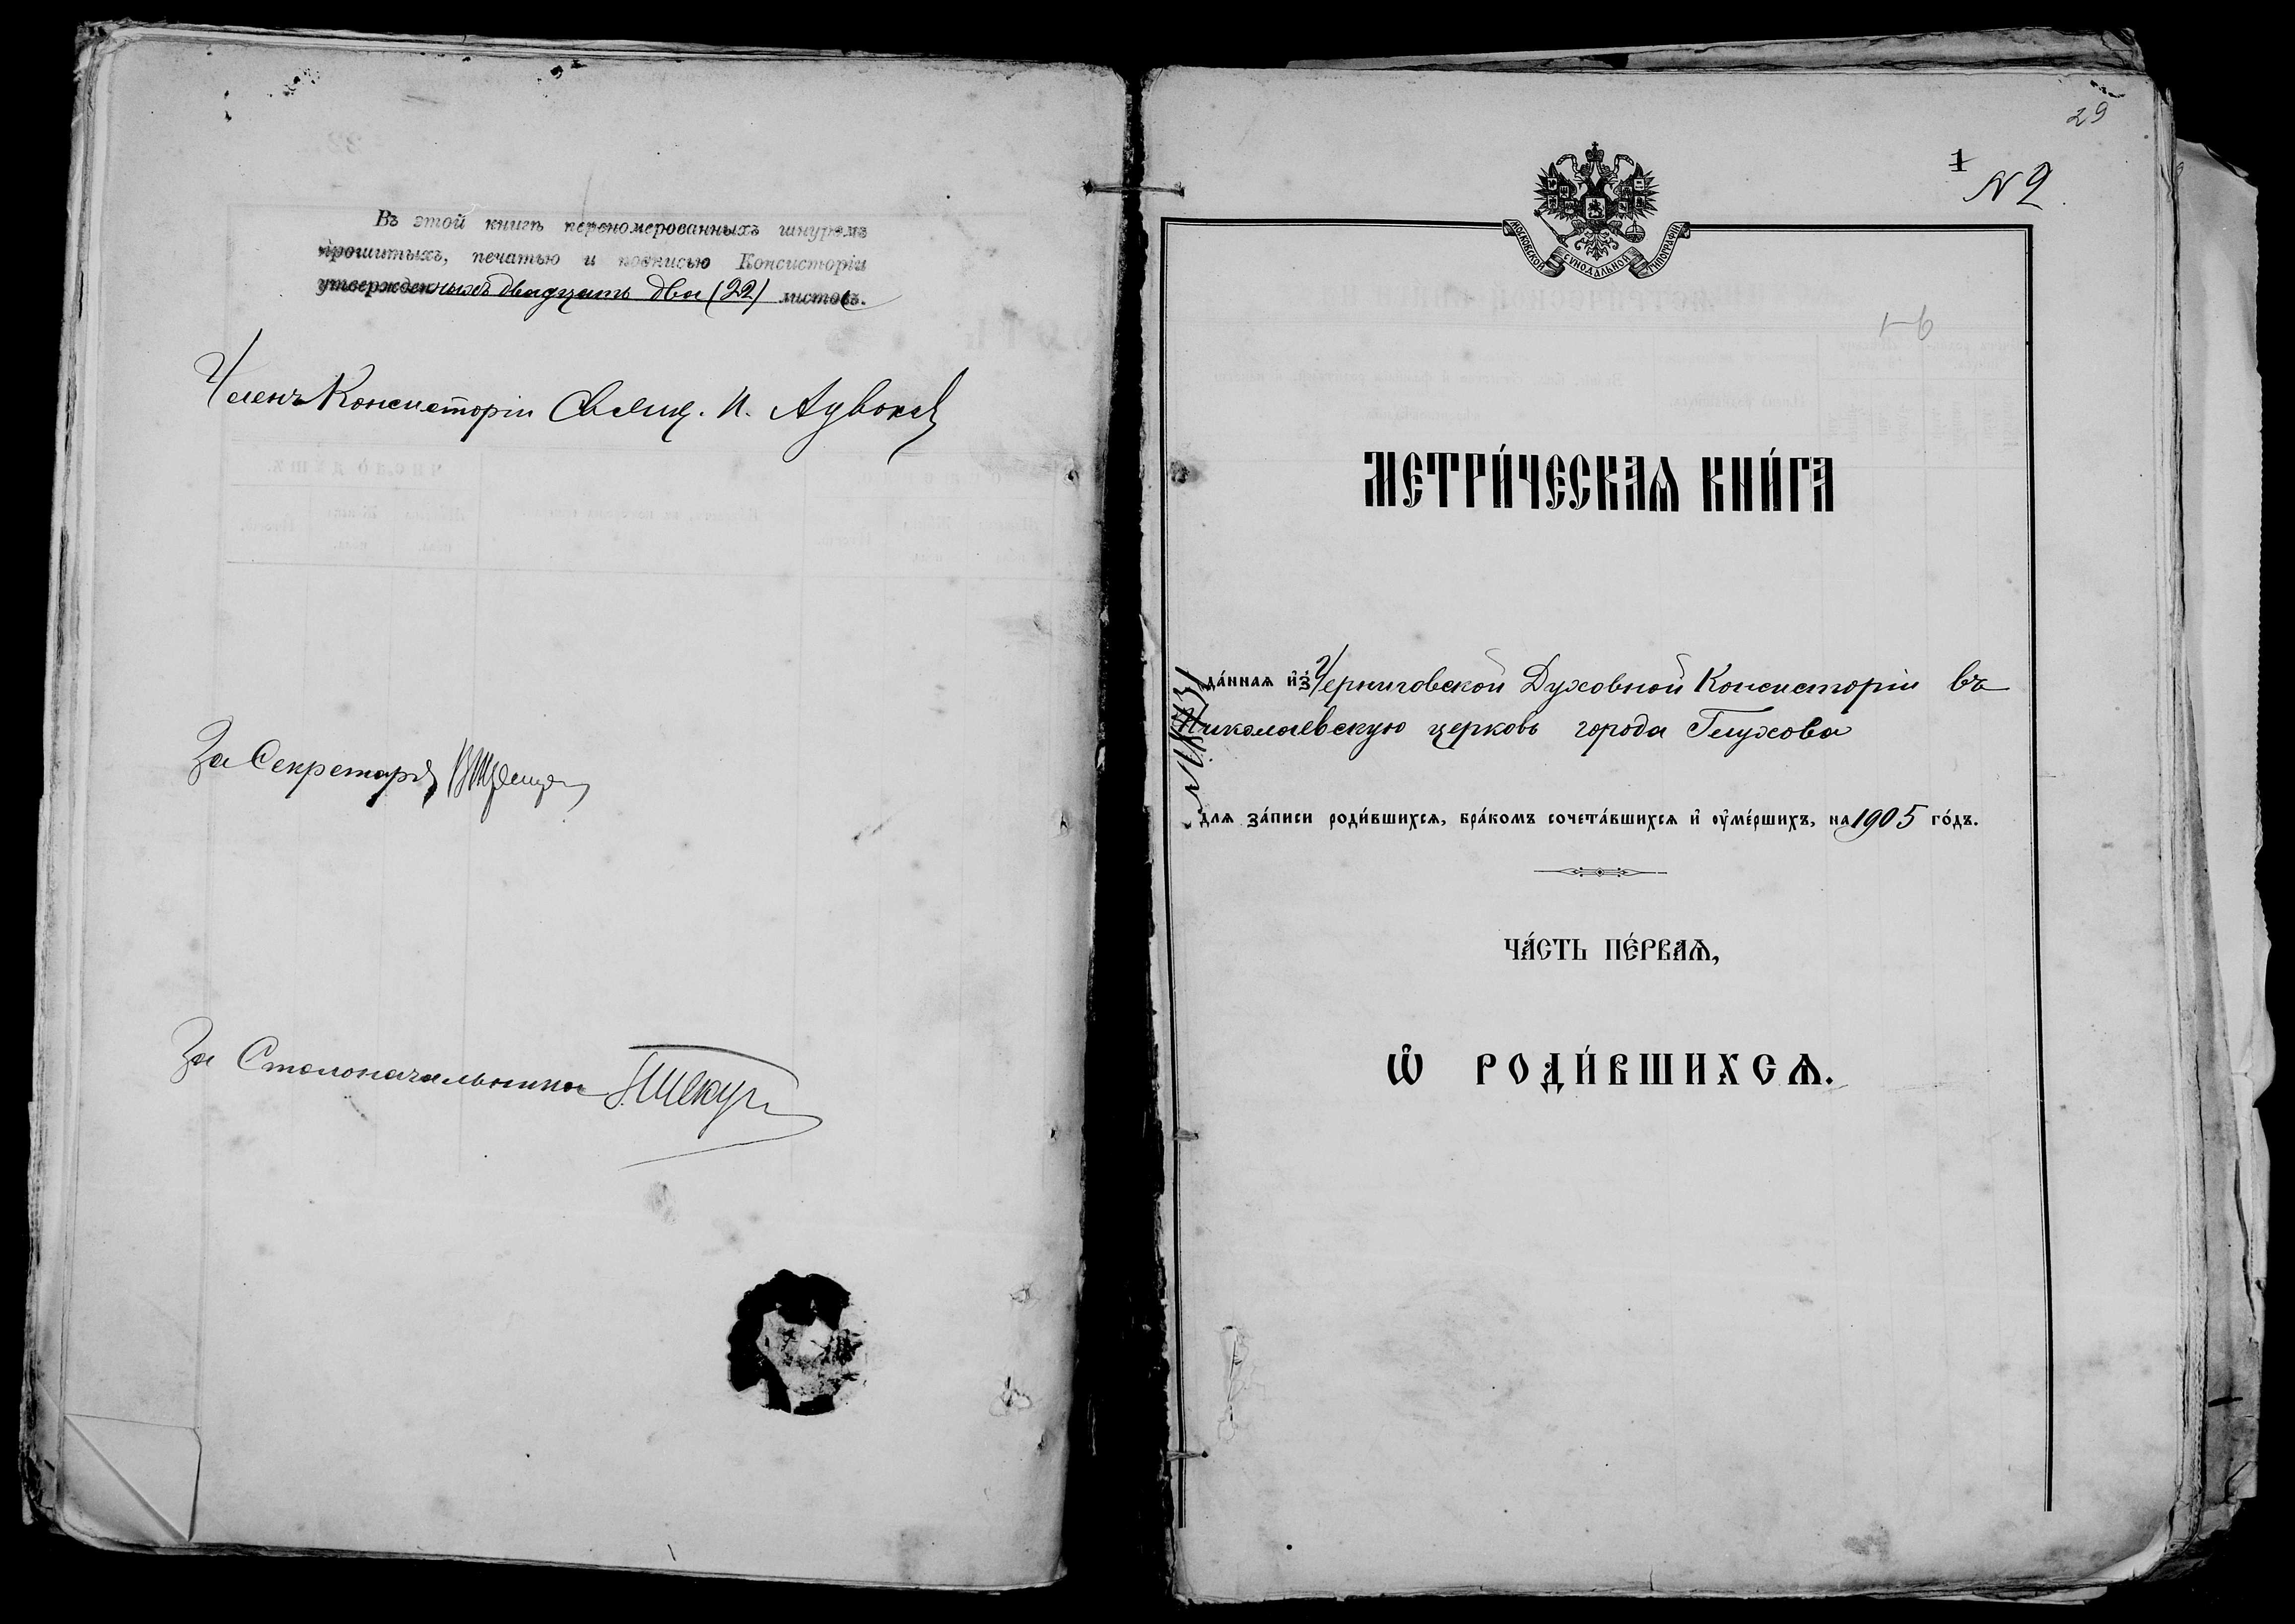 Въ этой книгѣ перономерованныхъ шнуромъ
прошитыхъ, печатью и подписью Консисторіи
утвержденныхъ двадцать два (22) листовъ.
Членъ Консисторіи Свящ. И.
За Секретаря
За Столоначальника
29
1
N 2
МОСКОВСКОЙ СѴНОДАЛЬНОЙ ТИПОГРАФІИ
1-6
МЕТРИ́ЧЕСКАѦ КНИ́ГА
да́ннаѧ и҆зъ Черниговской Духовной Консисторіи въ
Николаевскую церковь города Глухова
длѧ за́писи роди́вшихсѧ, бра́комъ сочета́вшихсѧ и҆ оу҆ме́ршихъ, на 1905 го́дъ.
ЧА́СТЬ ПЕ́РВАѦ,
Ѽ РОДИ́ВШИХСѦ.